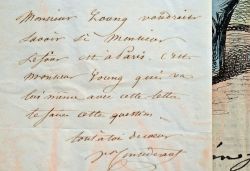 Monsieur Young voudrait
savoir si Monsieur
est à Paris. C'est
Monsieur Young qui va
lui même avec cette lettre
faire cette question.
tout à toi de cœur